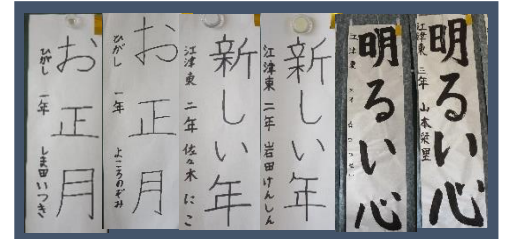 お正月
ひがし 一年 しま田いつき
お正月
ひがし 一年 よころのぞみ
新しい年
江津東 二年 佐々木 にこ
新しい年
江津東 二年 岩田けんしん
明るい心
江津東
明るい心
江津東 三年 山本栞里